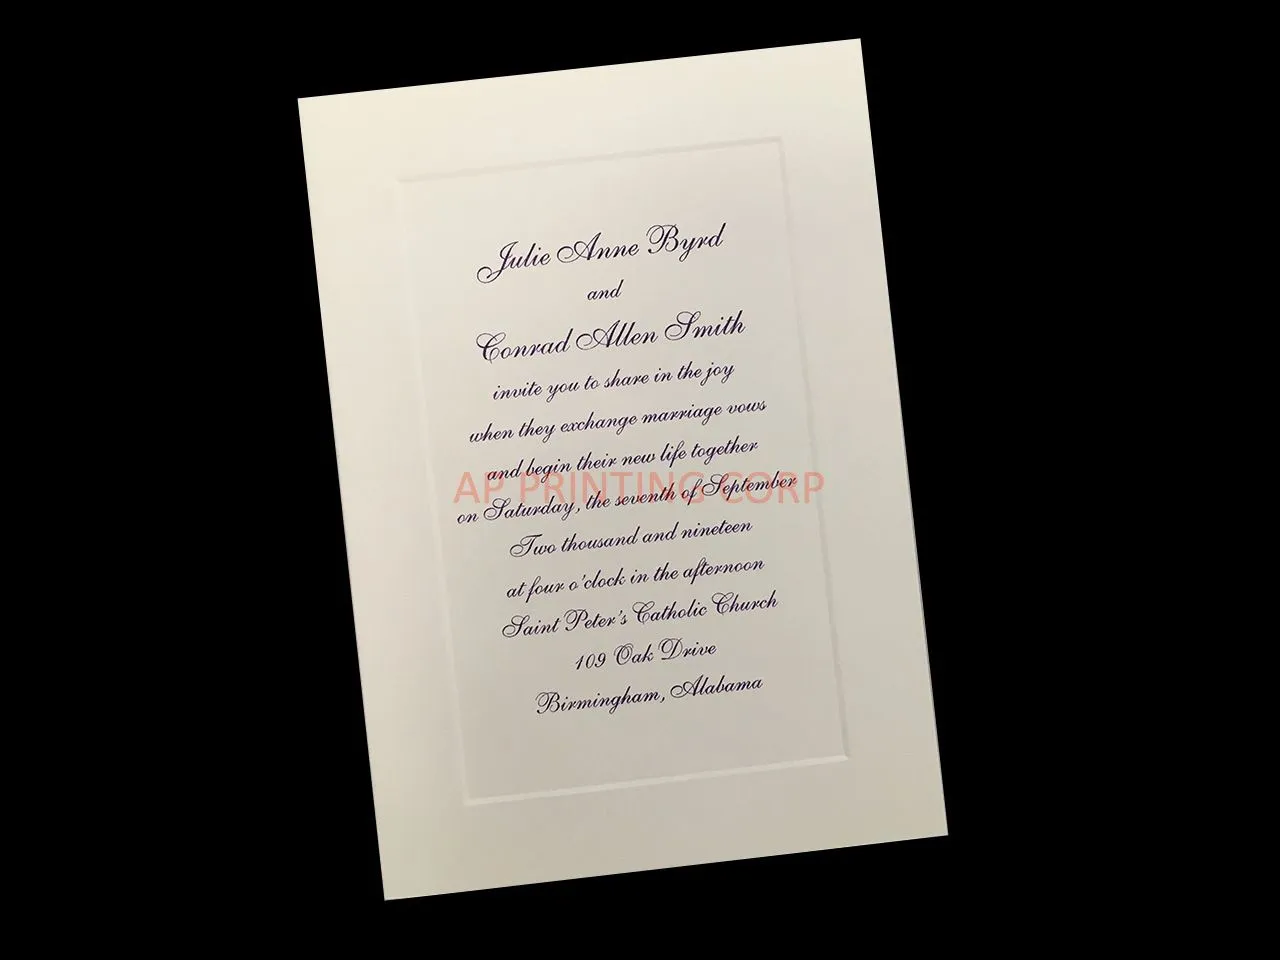 Julie Anne Byrd
and
Conrad Allen Smith
invite you to share in the joy
when they exchange marriage vows
and begin their new life together
AP PRINTING CORP
on Saturday, the seventh of September
Two thousand and nineteen
at four o'clock in the afternoon
Saint Peter's Catholic Church
109 Oak Drive
Birmingham, Alabama